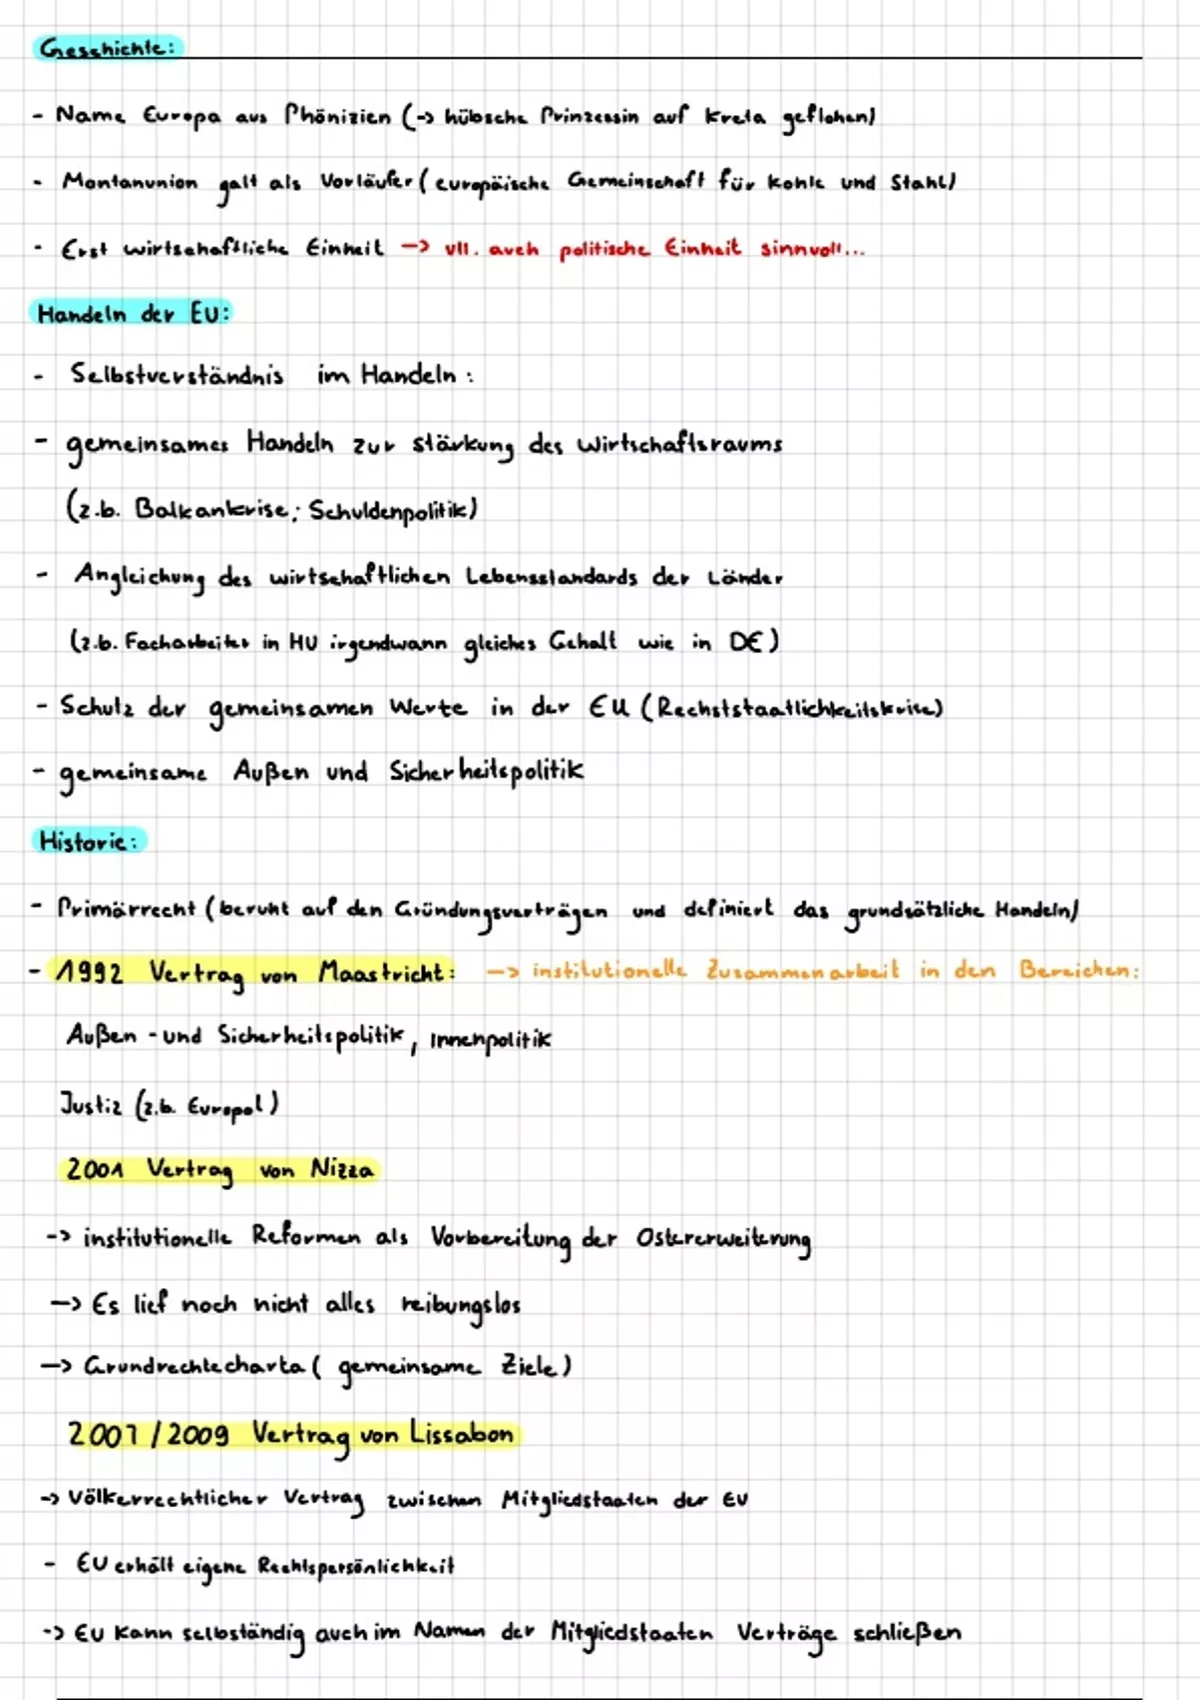 Geschichte:
- Name Europa aus Phönizien (-> hübsche Prinzessin auf Kreta geflohen)
- Montanunion galt als Vorläufer (europäische Gemeinschaft für Kohle und Stahl)
- Erst wirtschaftliche Einheit -> vll. auch politische Einheit sinnvoll...
Handeln der EU:
- Selbstverständnis im Handeln:
- gemeinsames Handeln zur Stärkung des Wirtschaftsraums
(z.b. Balkankrise; Schuldenpolitik)
- Angleichung des wirtschaftlichen Lebensstandards der Länder
(z.b. Facharbeiter in HU irgendwann gleiches Gehalt wie in DE)
- Schutz der gemeinsamen Werte in der EU (Rechststaatlichkeitskrise)
- gemeinsame Außen und Sicherheitspolitik
Historie:
- Primärrecht (beruht auf den Gründungsverträgen und definiert das grundsätzliche Handeln)
- 1992 Vertrag von Maastricht: -> institutionelle Zusammenarbeit in den Bereichen:
Außen - und Sicherheitspolitik, Innenpolitik
Justiz (z.b. Europol)
2001 Vertrag von Nizza
-> institutionelle Reformen als Vorbereitung der Ostererweiterung
-> Es lief noch nicht alles reibungslos
-> Grundrechtecharta ( gemeinsame Ziele)
2007/2009 Vertrag von Lissabon
-> Völkerrechtlicher Vertrag zwischen Mitgliedstaaten der EU
- EU erhält eigene Rechtspersönlichkeit
-> EU kann selbständig auch im Namen der Mitgliedstaaten Verträge schließen